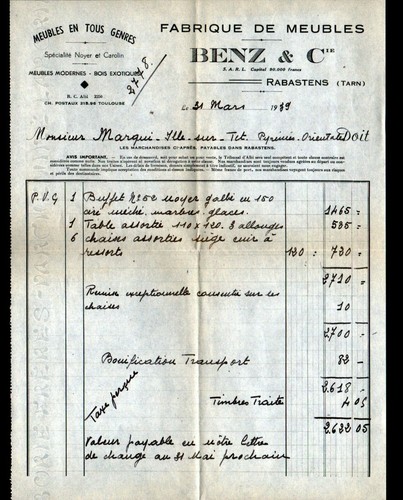 MEUBLES EN TOUS GENRES
Spécialité Noyer et Carolin
MEUBLES MODERNES - BOIS EXOTIQUES
R. C. Albi 2250
CH. POSTAUX 318.96 TOULOUSE
2778.
FABRIQUE DE MEUBLES
BENZ & CIE
S. A. R. L. Capital 50.000 francs
RABASTENS (TARN)
le 31 Mars 1939
Monsieur Marqui - Ille-sur-Tet. Pyrénées-Orientales Doit
LES MARCHANDISES CI-APRÈS, PAYABLES DANS RABASTENS.
AVIS IMPORTANT. — En cas de désaccord, soit pour achat ou pour vente, le Tribunal d'Albi sera seul compétent
P.V.G 1 Buffet N° 50 noyer galbé en 150
ciré marbres glaces. 1465 =
1 Table assortie 110 x 120. 3 allonges 535 =
6 chaises assorties siège cuir à
ressorts 130 = 730 =
2710 =
Remise exceptionnelle consentie sur les
chaises 10
2700 =
Bonification Transport 82 -
2.618 -
Taxe perçue
Timbres Traite 4 05
2.632 05
Valeur payable en notre lettre
de change au 31 Mai prochain